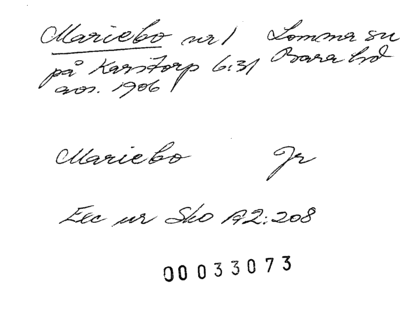 Mariebo nr 1 Lomma sn
på Karstorp 6:31 Bara hd
avs. 1906
Mariebo Jr
Exc ur Sko A2:208
00033073